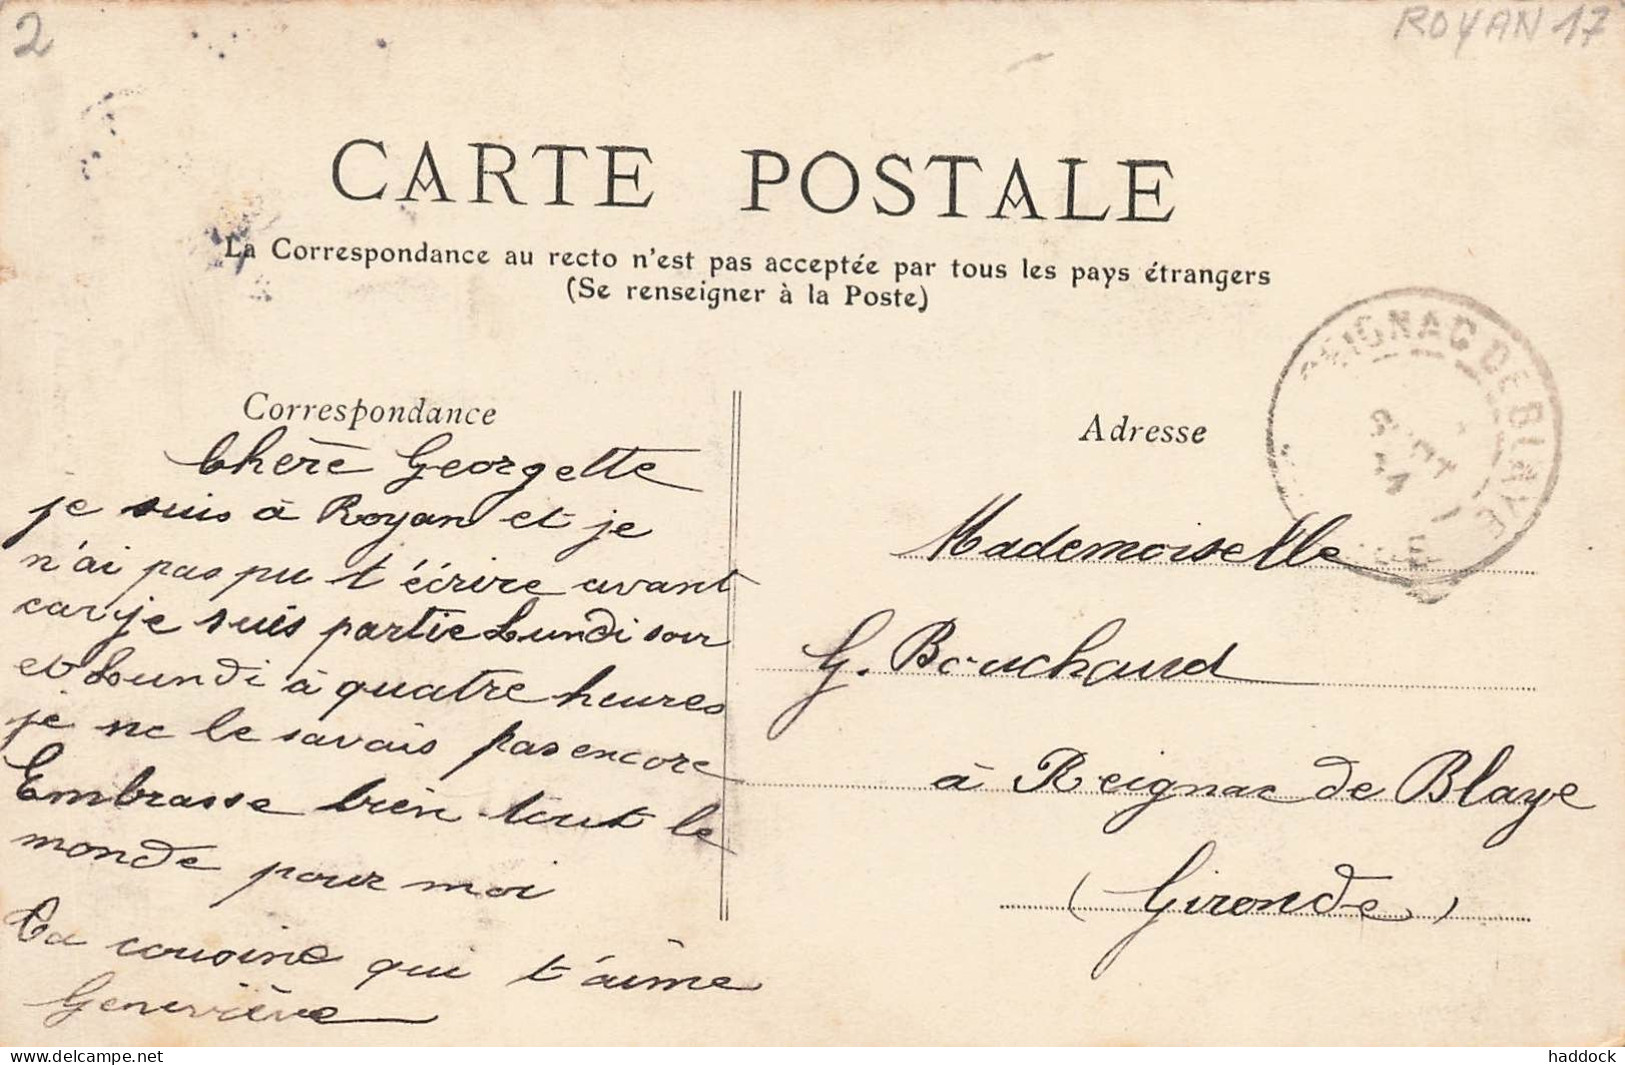 2
ROYAN 17
CARTE POSTALE
La Correspondance au recto n'est pas acceptée par tous les pays étrangers
(Se renseigner à la Poste)
REIGNAC DE BLAYE
Correspondance
Chère Georgette
je suis à Royan et je
n'ai pas pu t'écrire avant
car je suis partie Lundi soir
et Lundi à quatre heures
je ne le savais pas encore
Embrasse bien tout le
monde pour moi
Ta cousine qui t'aime
Geneviève
Adresse
Mademoiselle
G. Bouchaud
à Reignac de Blaye
(Gironde)
www.delcampe.net
haddock